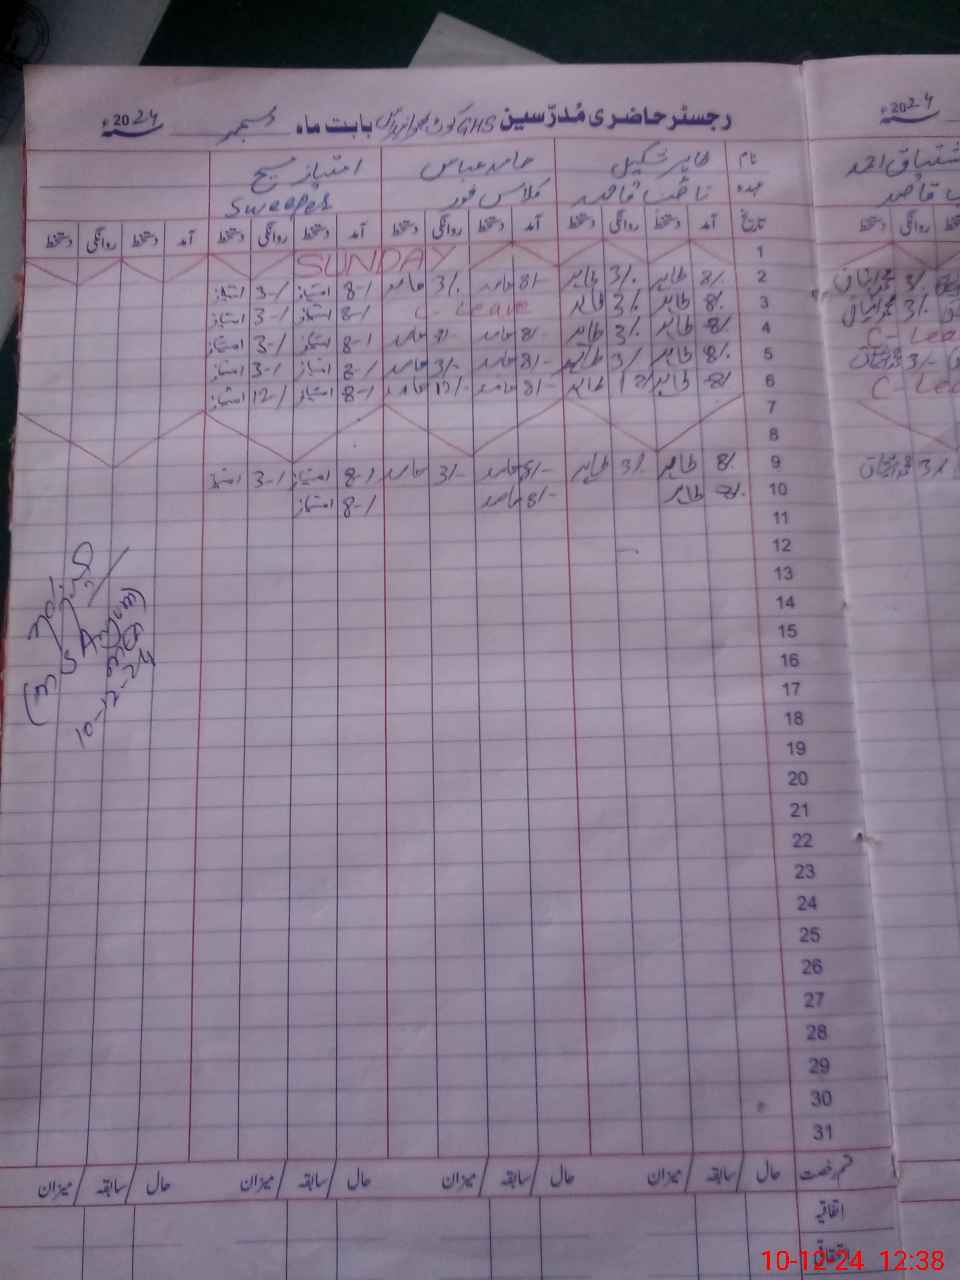 رجسٹر حاضری مُدرّسین GHS کوٹ بابت ماہ دسمبر سنہ 2024ء
سنہ 2024ء
نام طاہر شکیل حامد عباس امتیاز مسیح
عہدہ نائب قاصد کلاس فور Sweeper
تاریخ آمد دستخط روانگی دستخط آمد دستخط روانگی دستخط آمد دستخط روانگی دستخط آمد دستخط روانگی دستخط
1 SUNDAY
2 8/- طاہر 3/- طاہر 8/- حامد 3/- حامد 8-/ امتیاز 3-/ امتیاز
3 8/- طاہر 3/- طاہر C-Leave 8-/ امتیاز 3-/ امتیاز
4 8/- طاہر 3/- طاہر 8/- حامد حامد 8-/ امتیاز 3-/ امتیاز C-Lea
5 8/- طاہر 3/- طاہر 8/- حامد 3/- حامد 8-/ امتیاز 3-/ امتیاز
6 8/- طاہر 12/ طاہر 8/- حامد 12/- حامد 8-/ امتیاز 12-/ امتیاز C-Lea
7
8
9 8/- طاہر 3/- طاہر 8/- حامد 3/- حامد 8-/ امتیاز 3-/ امتیاز
10 8/- طاہر 8/- حامد 8-/ امتیاز
11
12
13
14
15
16
17
18
19
20
21
22
23
24
25
26
27
28
29
30
31
10-12-24
قسم رخصت حال / سابقہ / میزان حال / سابقہ / میزان حال / سابقہ / میزان حال / سابقہ / میزان
اتفاقیہ
10-12-24 12:38